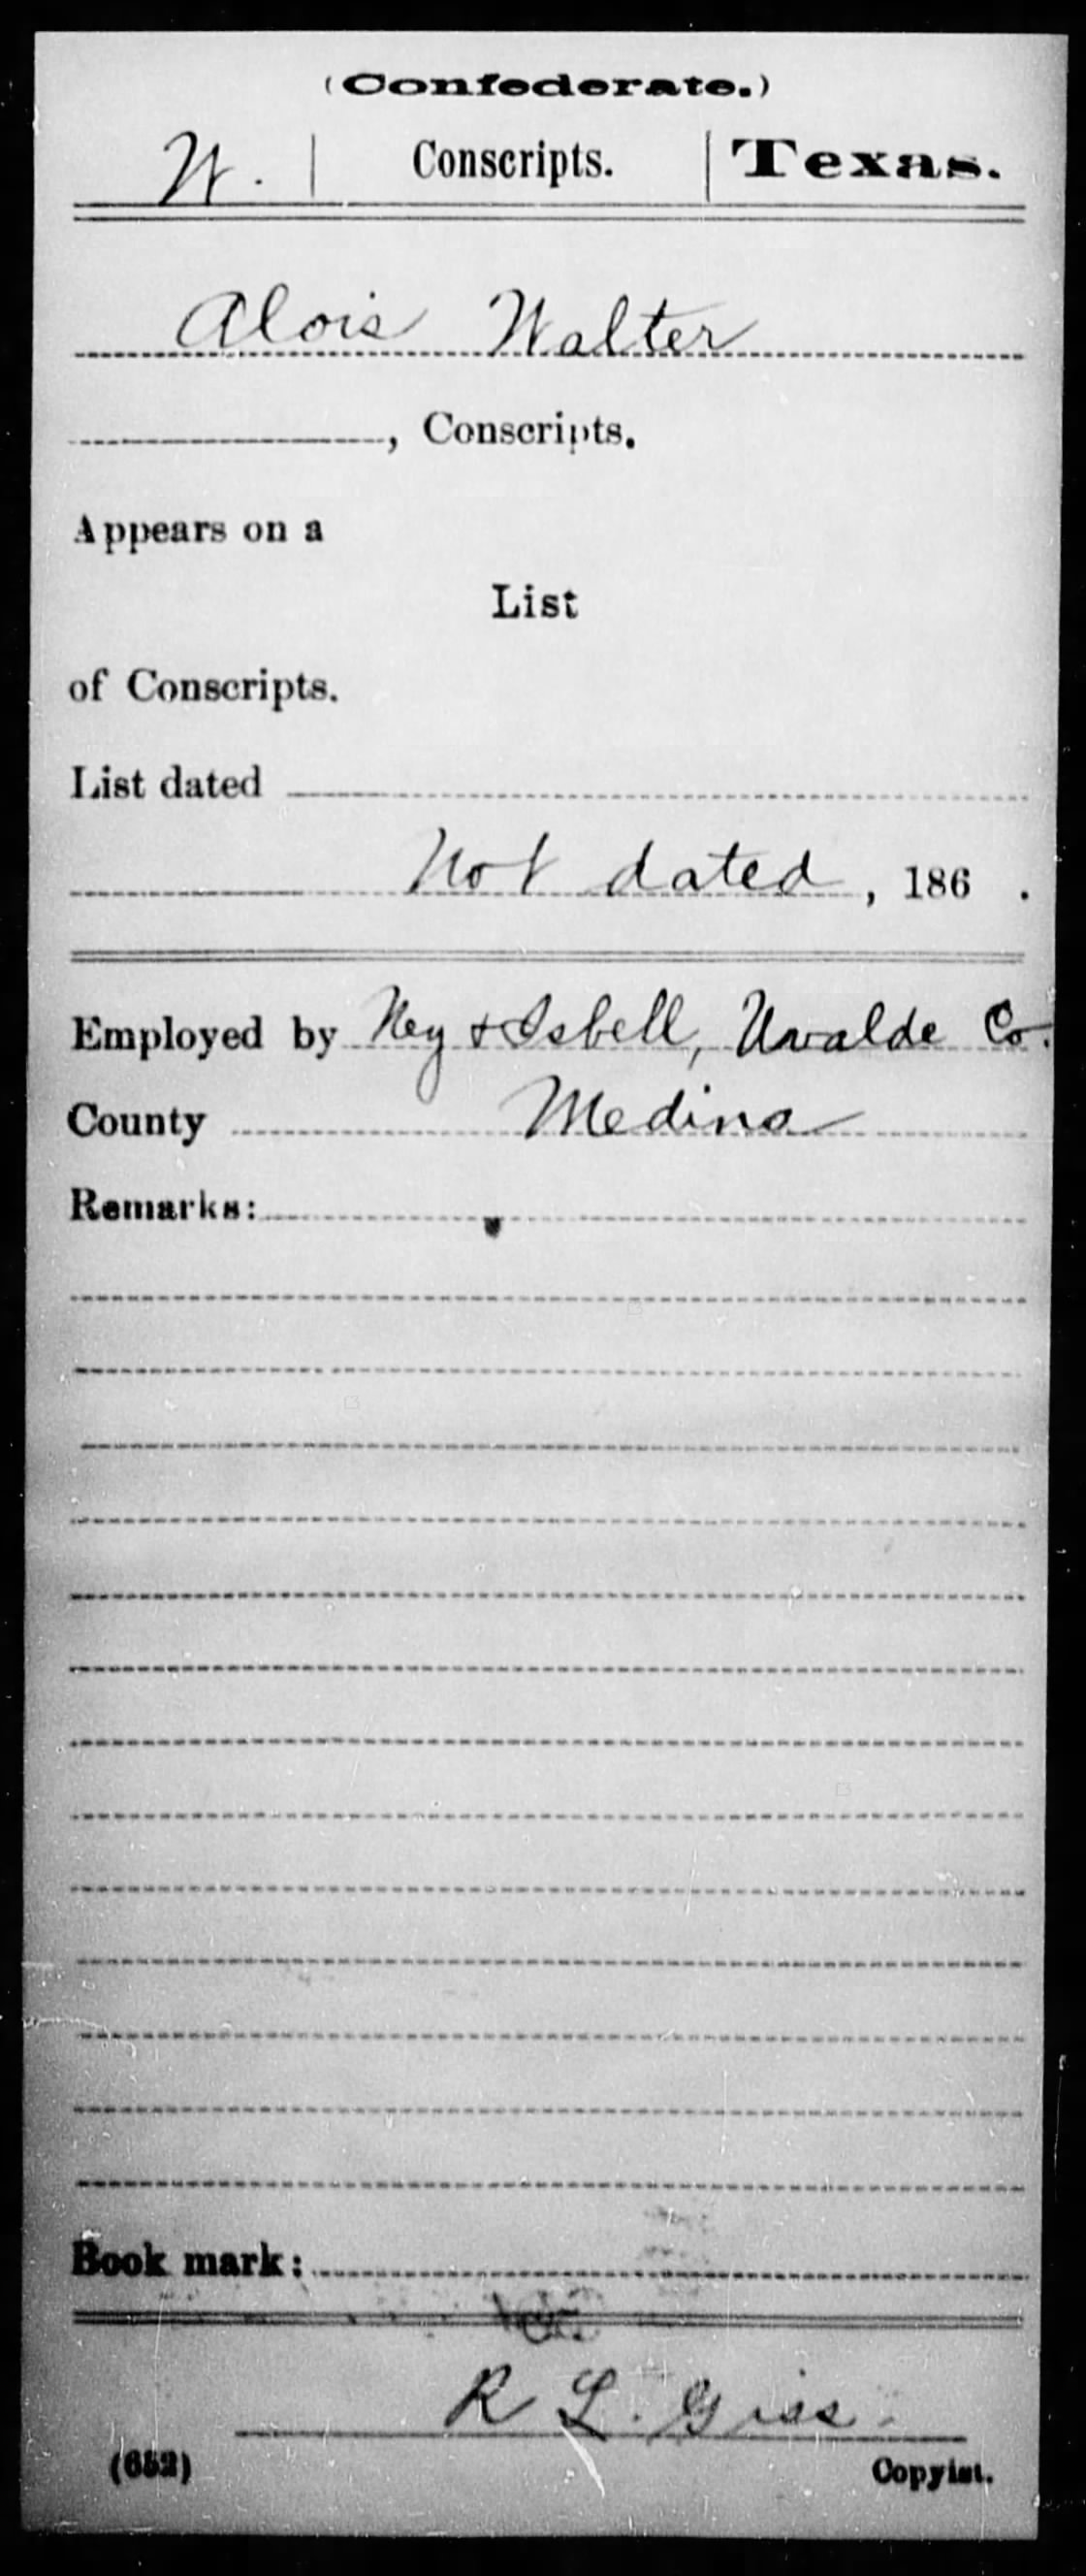 (Confederate.)
W. Conscripts. Texas.
Alois Walter
, Conscripts.
Appears on a
List
of Conscripts.
List dated
Not dated, 186 .
Employed by Ney & Isbell, Uvalde Co.
County Medina
Remarks:
Book mark:
R L. Giss.
(652) Copyist.